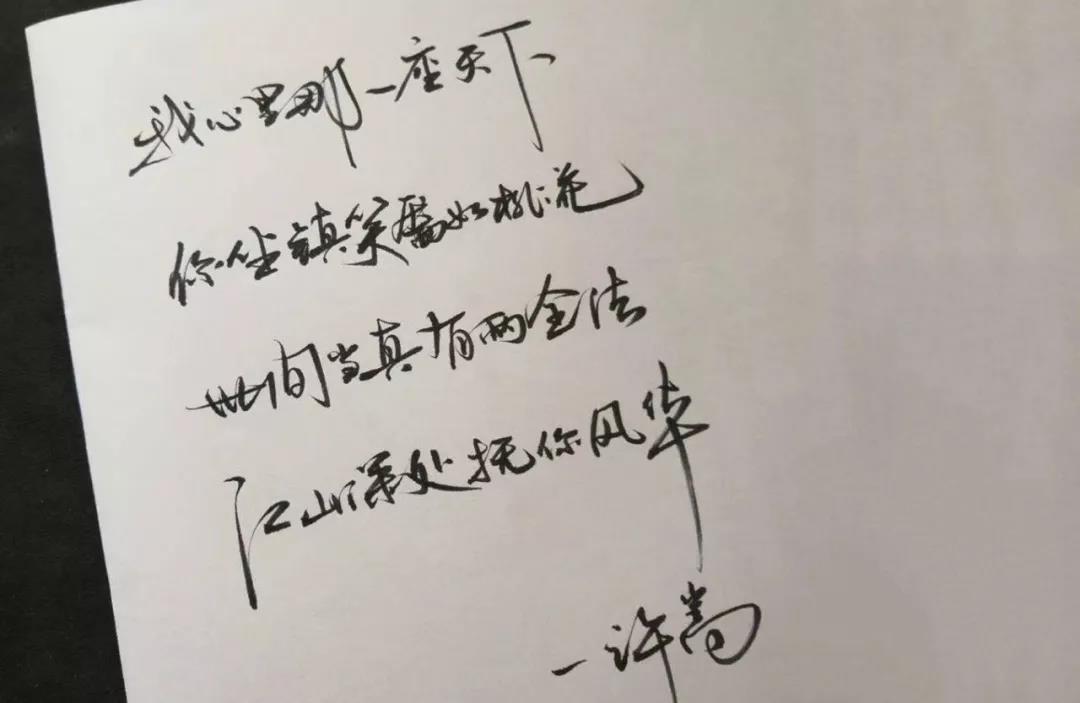 我心里那一座天下
你坐镇笑靥如桃花
世间当真有两全法
江山深处抚你风华
一许嵩